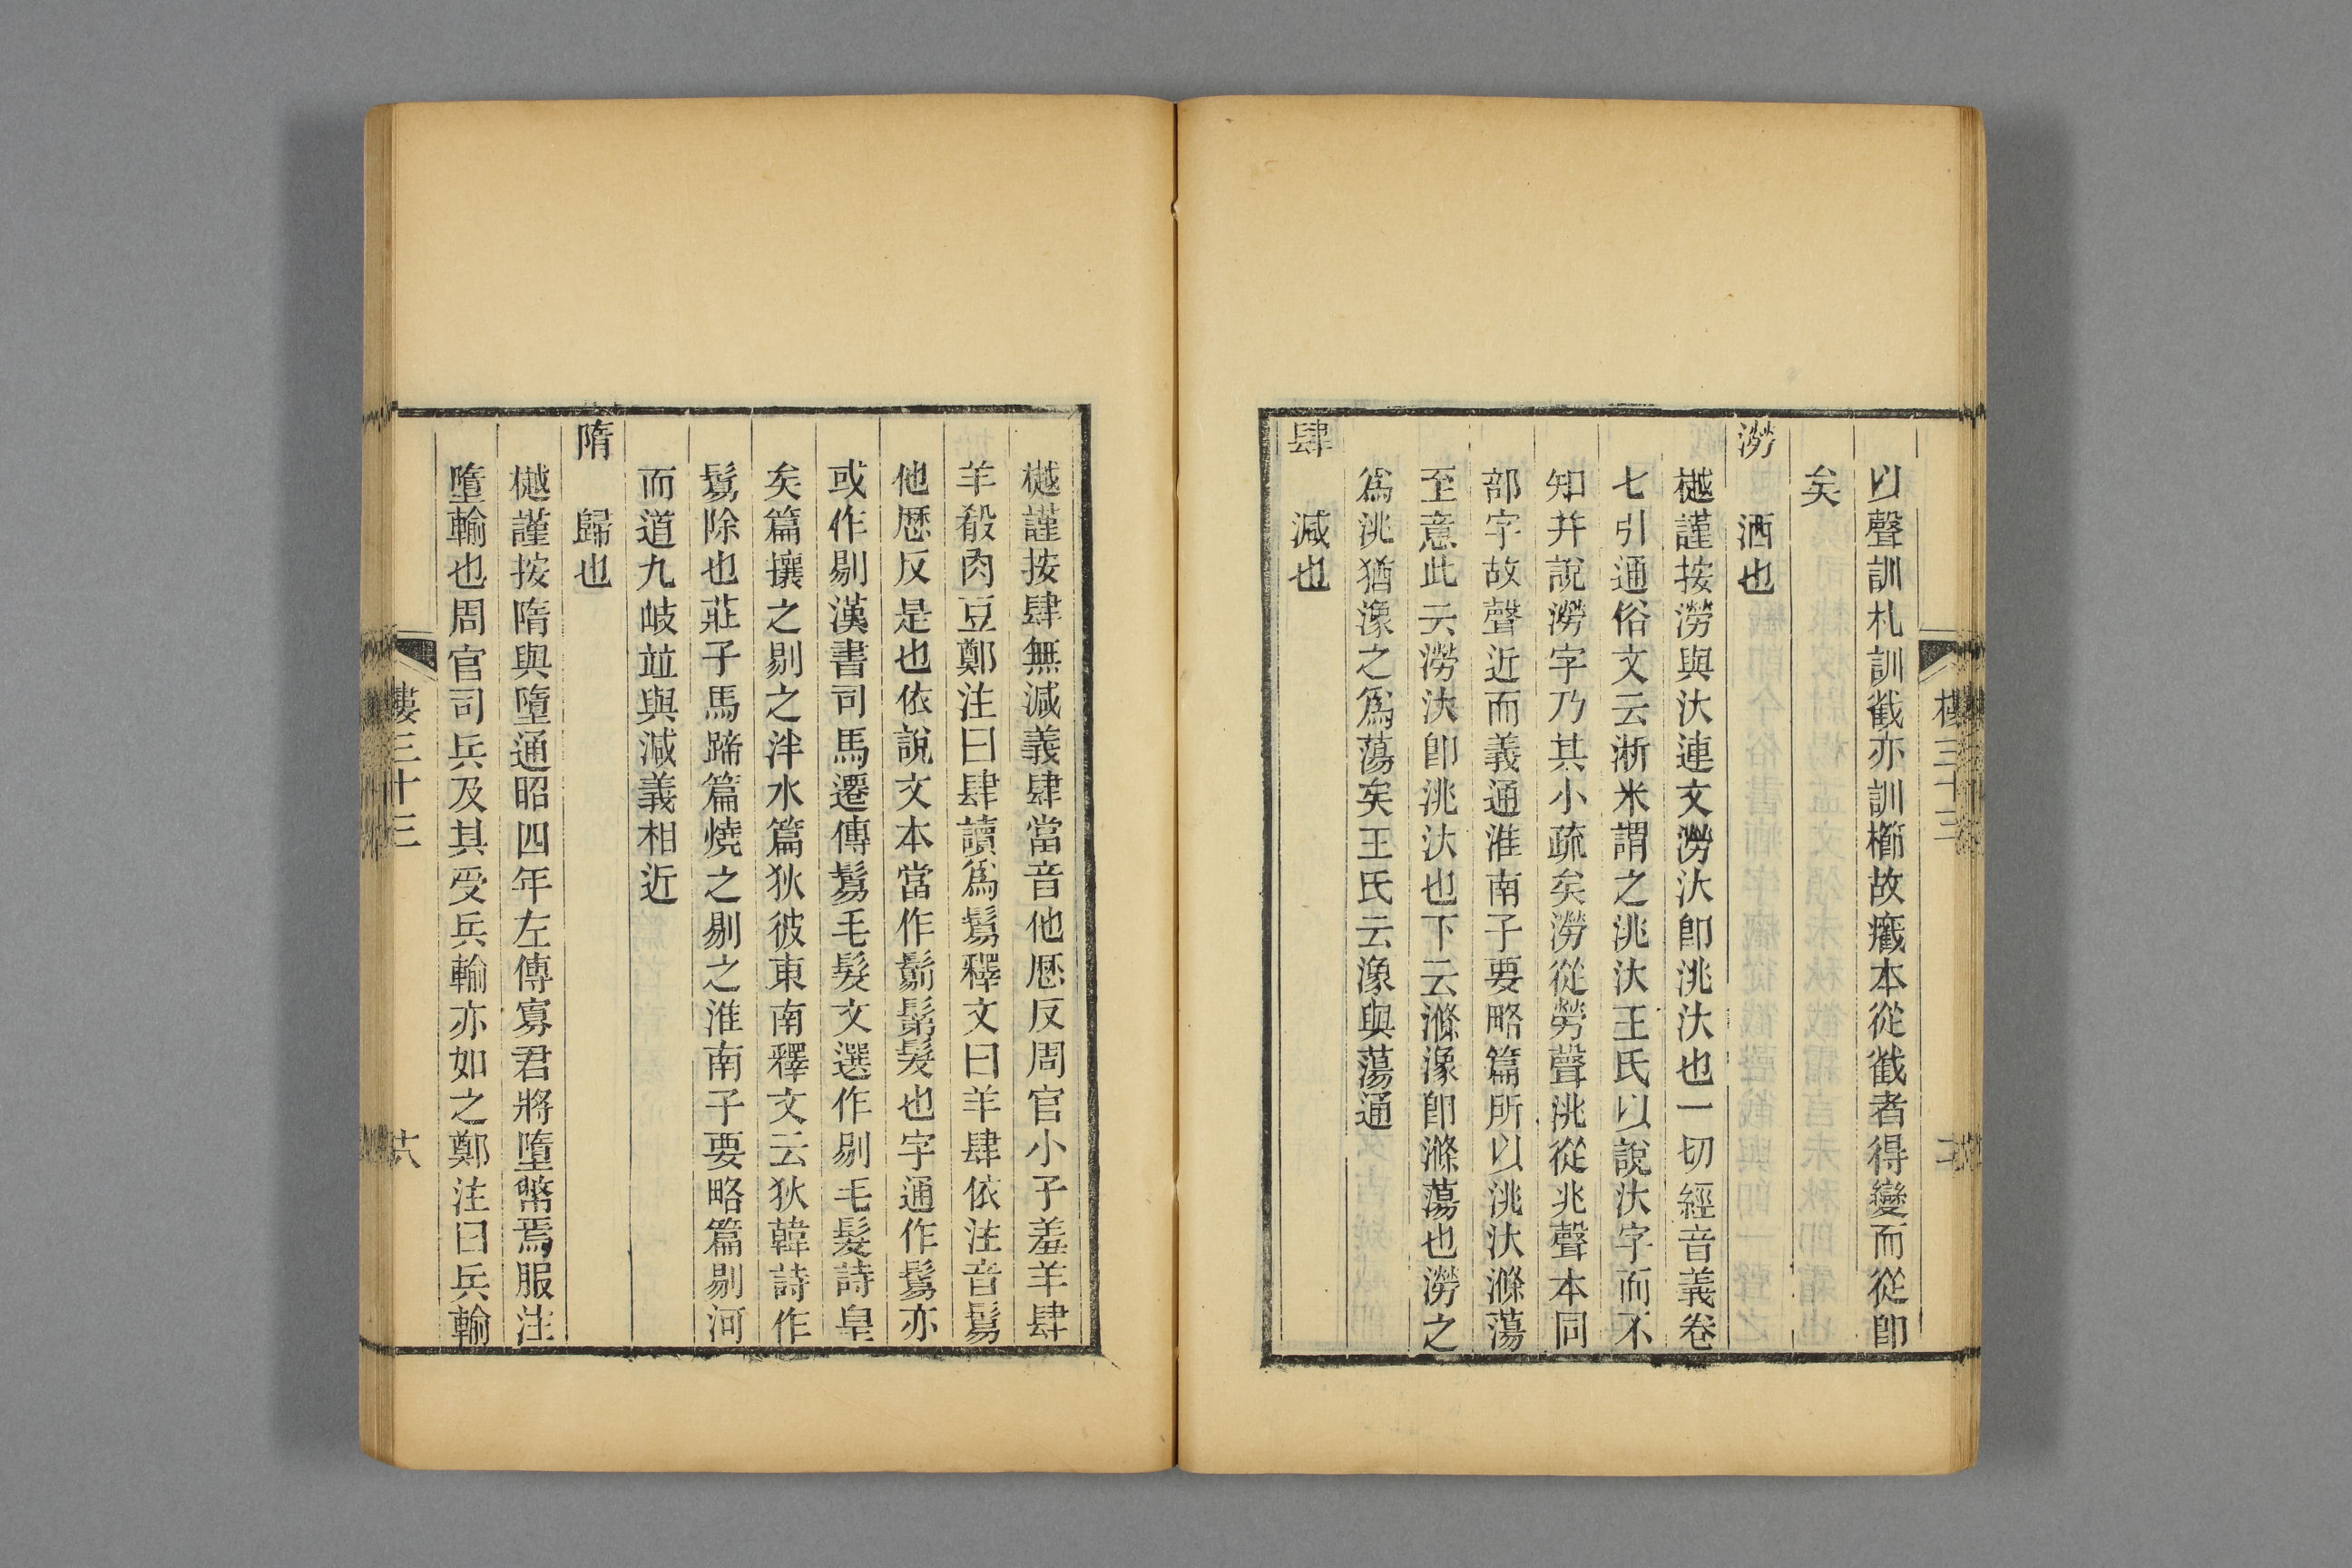 以聲訓札訓㦰亦訓櫛故㿍本從㦰者得變而從卽
矣
澇　洒也
樾謹按澇與汏連文澇汏卽洮汏也一切經音義卷
七引通俗文云淅米謂之洮汏王氏以說汏字而不
知并說澇字乃其小疏矣澇從勞聲洮從兆聲本同
部字故聲近而義通淮南子要略篇所以洮汏滌蕩
至意此云澇汏卽洮汏也下云滌潒卽滌蕩也澇之
爲洮猶潒之爲蕩矣王氏云潒與蕩通
肆　減也
樾謹按肆無減義肆當音他厯反周官小子羞羊肆
羊殽肉豆鄭注曰肆讀爲鬄釋文曰羊肆依注音鬄
他厯反是也依說文本當作鬎鬄髮也字通作鬄亦
或作剔漢書司馬遷傳鬄毛髮文選作剔毛髮詩皇
矣篇攘之剔之泮水篇狄彼東南釋文云狄韓詩作
鬄除也莊子馬蹄篇燒之剔之淮南子要略篇剔河
而道九岐竝與減義相近
隋　歸也
樾謹按隋與墮通昭四年左傳寡君將墮幣焉服注
墮輸也周官司兵及其受兵輸亦如之鄭注曰兵輸
樓三十三
六